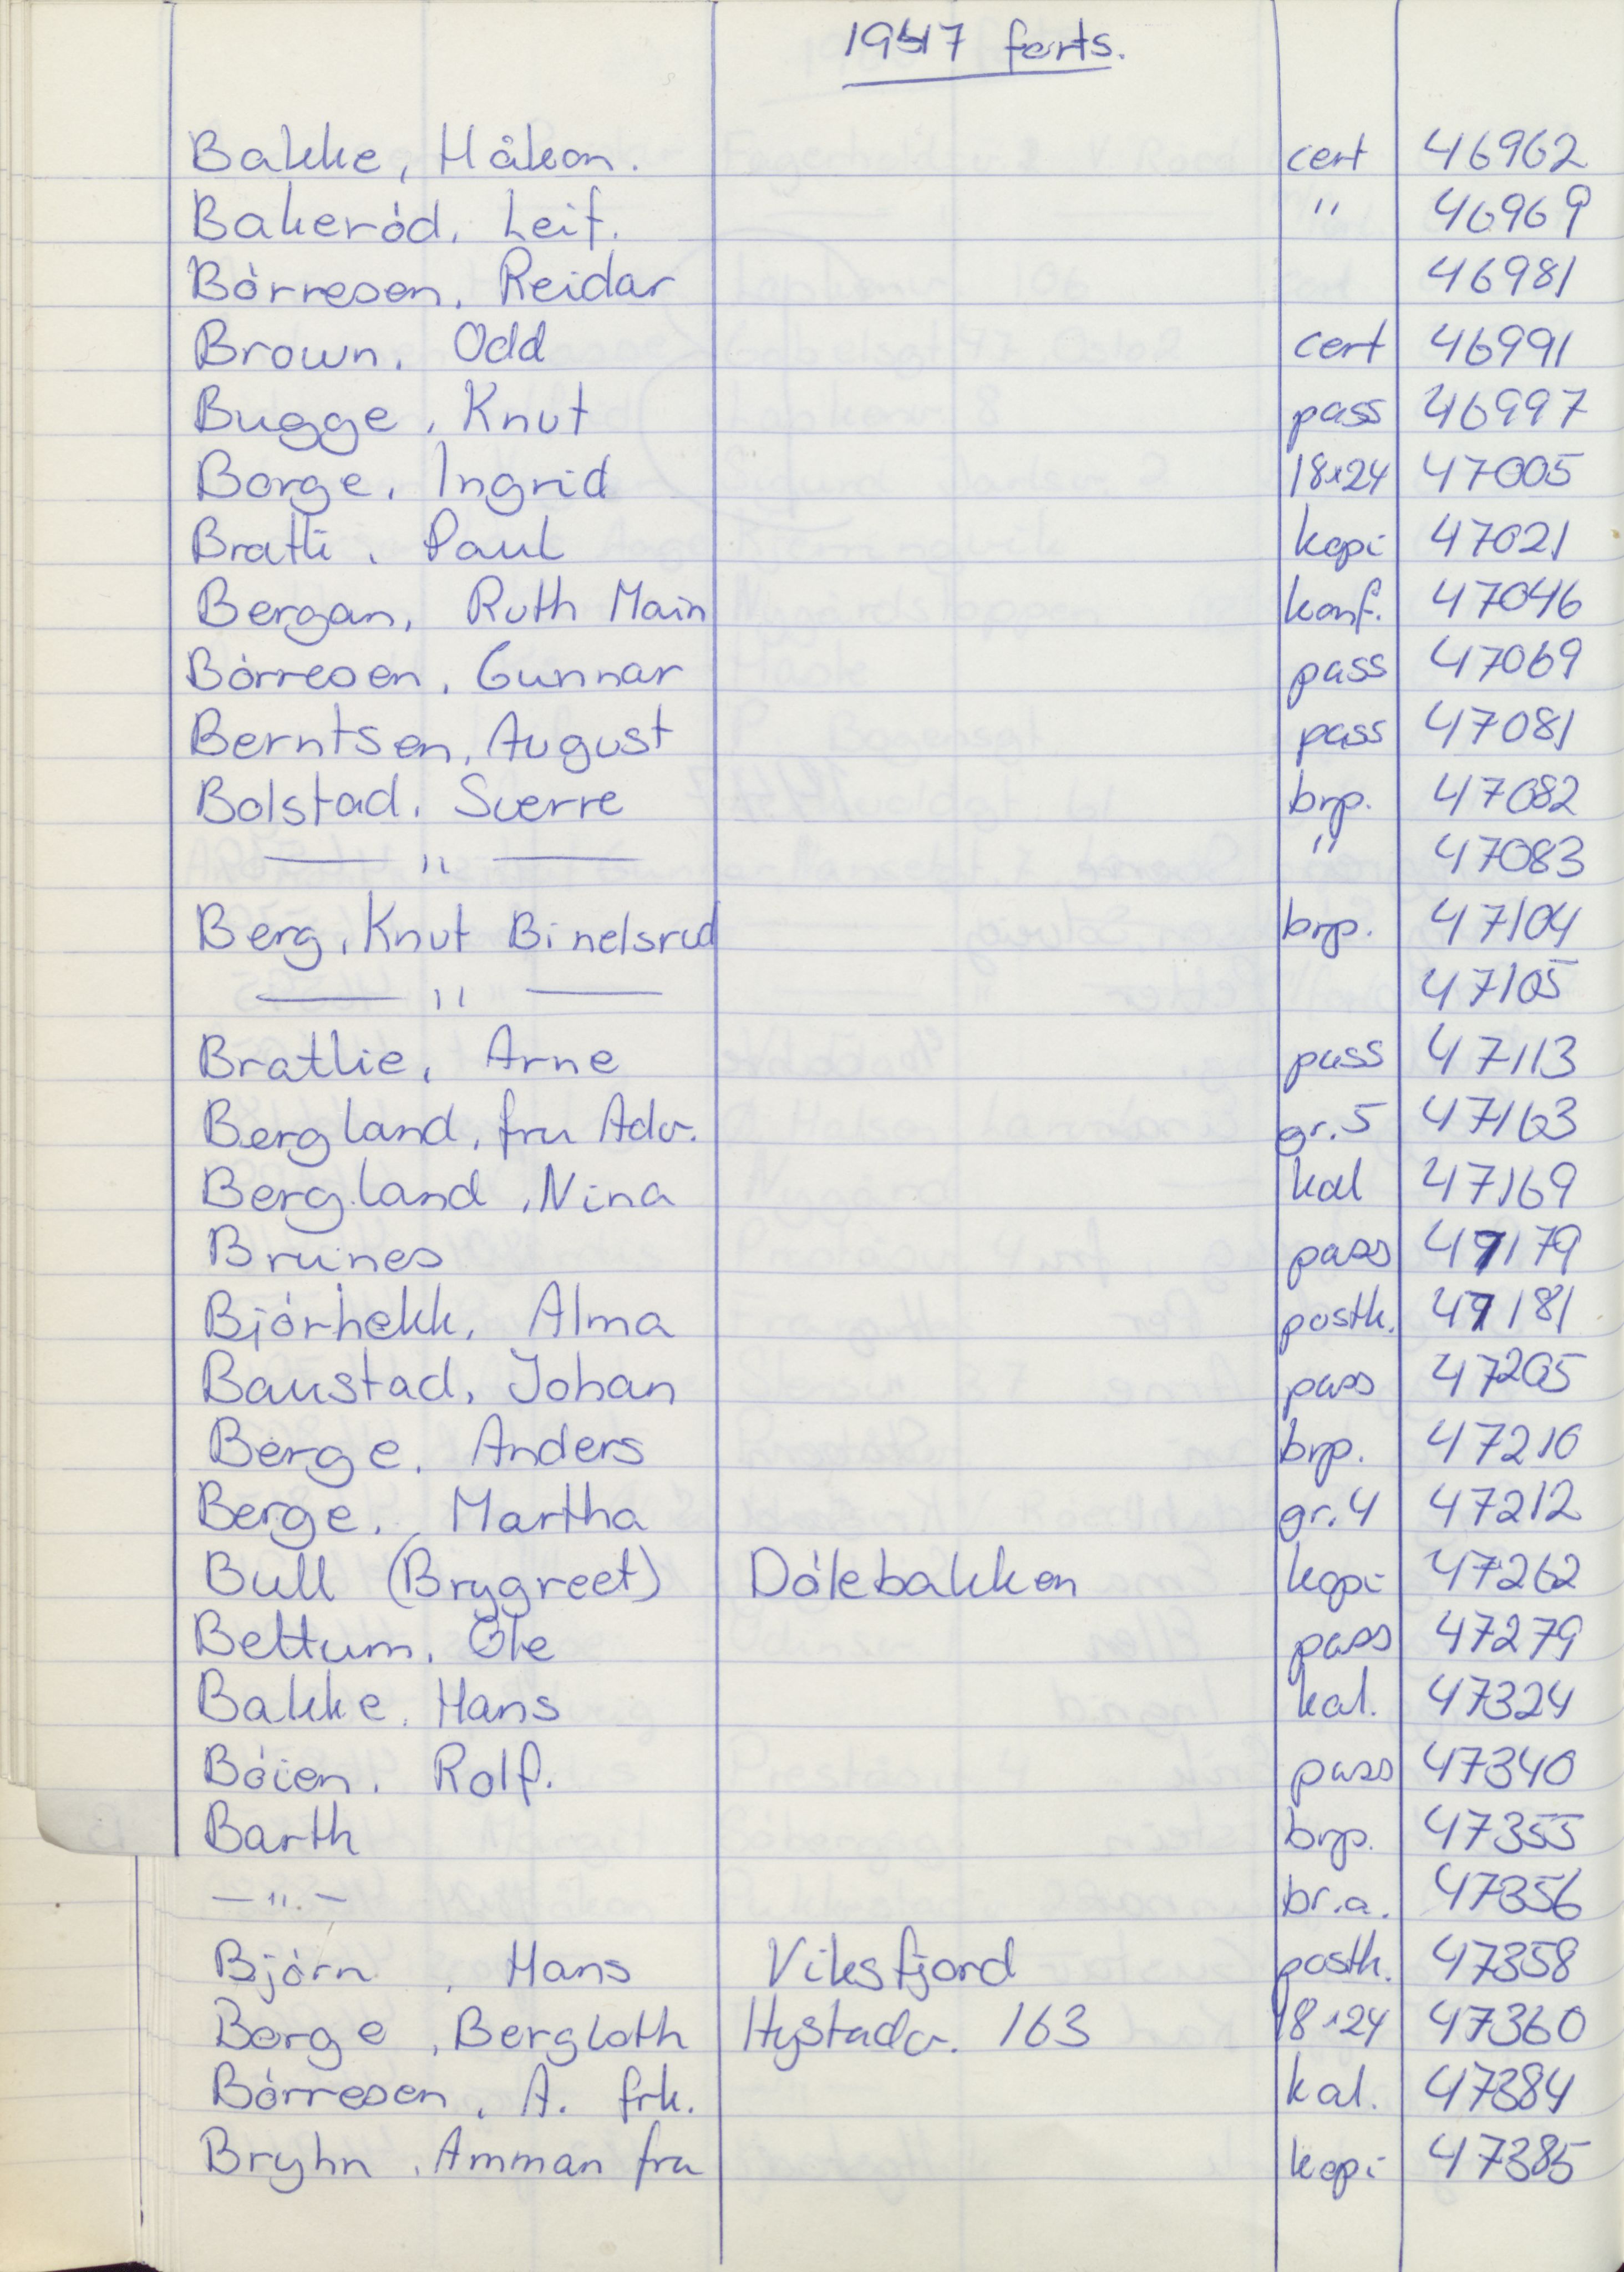 1947 forts.
Bakke, Håkon. cert 46962
Bakeröd, Leif. " 46969
Börresen, Reidar 46981
Brown, Odd cert 46991
Bugge, Knut pass 46997
Borge, Ingrid 18x24 47005
Bratli, Paul kopi 47021
Bergan, Ruth Main konf. 47046
Börresen, Gunnar pass 47069
Berntsen, August pass 47081
Bolstad, Sverre brp. 47082
— " — " 47083
Berg, Knut Binelsrud brp. 47104
— " — 47105
Bratlie, Arne pass 47113
Bergland, fru Adv. gr. 5 47163
Bergland, Nina kal 47169
Bruines pass 47179
Bjórhekk, Alma postk. 47181
Baustad, Johan pass 47205
Berge, Anders brp. 47210
Berge, Martha gr. 4 47212
Bull (Brygreet) Dólebakken kopi 47262
Bettum, Ole pass 47279
Bakke, Hans kal. 47324
Bóien, Rolf. pass 47340
Barth brp. 47355
— " — br.a. 47356
Bjórn, Hans Viksfjord postk. 47358
Borge, Bergloth Hystadv. 163 18x24 47360
Bórresen, A. frk. kal. 47384
Bryhn, Amman fru kopi 47385